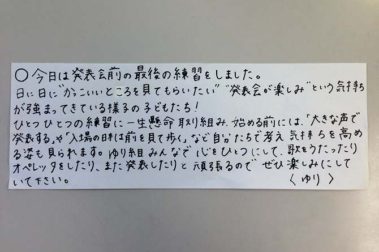 ○今日は発表会前の最後の練習をしました。
日に日に"かっこいいところを見てもらいたい""発表会が楽しみ"という気持ち
が強まってきている様子の子どもたち！
ひとつひとつの練習に一生懸命取り組み、始める前には、"大きな声で
発表する"や"入場の時は前を見て歩く"など自分たちで考え気持ちを高め
る姿も見られます。ゆり組みんなで心をひとつにして、歌をうたったり
オペレッタをしたり、また発表したりと頑張るのでぜひ楽しみにして
いて下さい。 〈ゆり〉